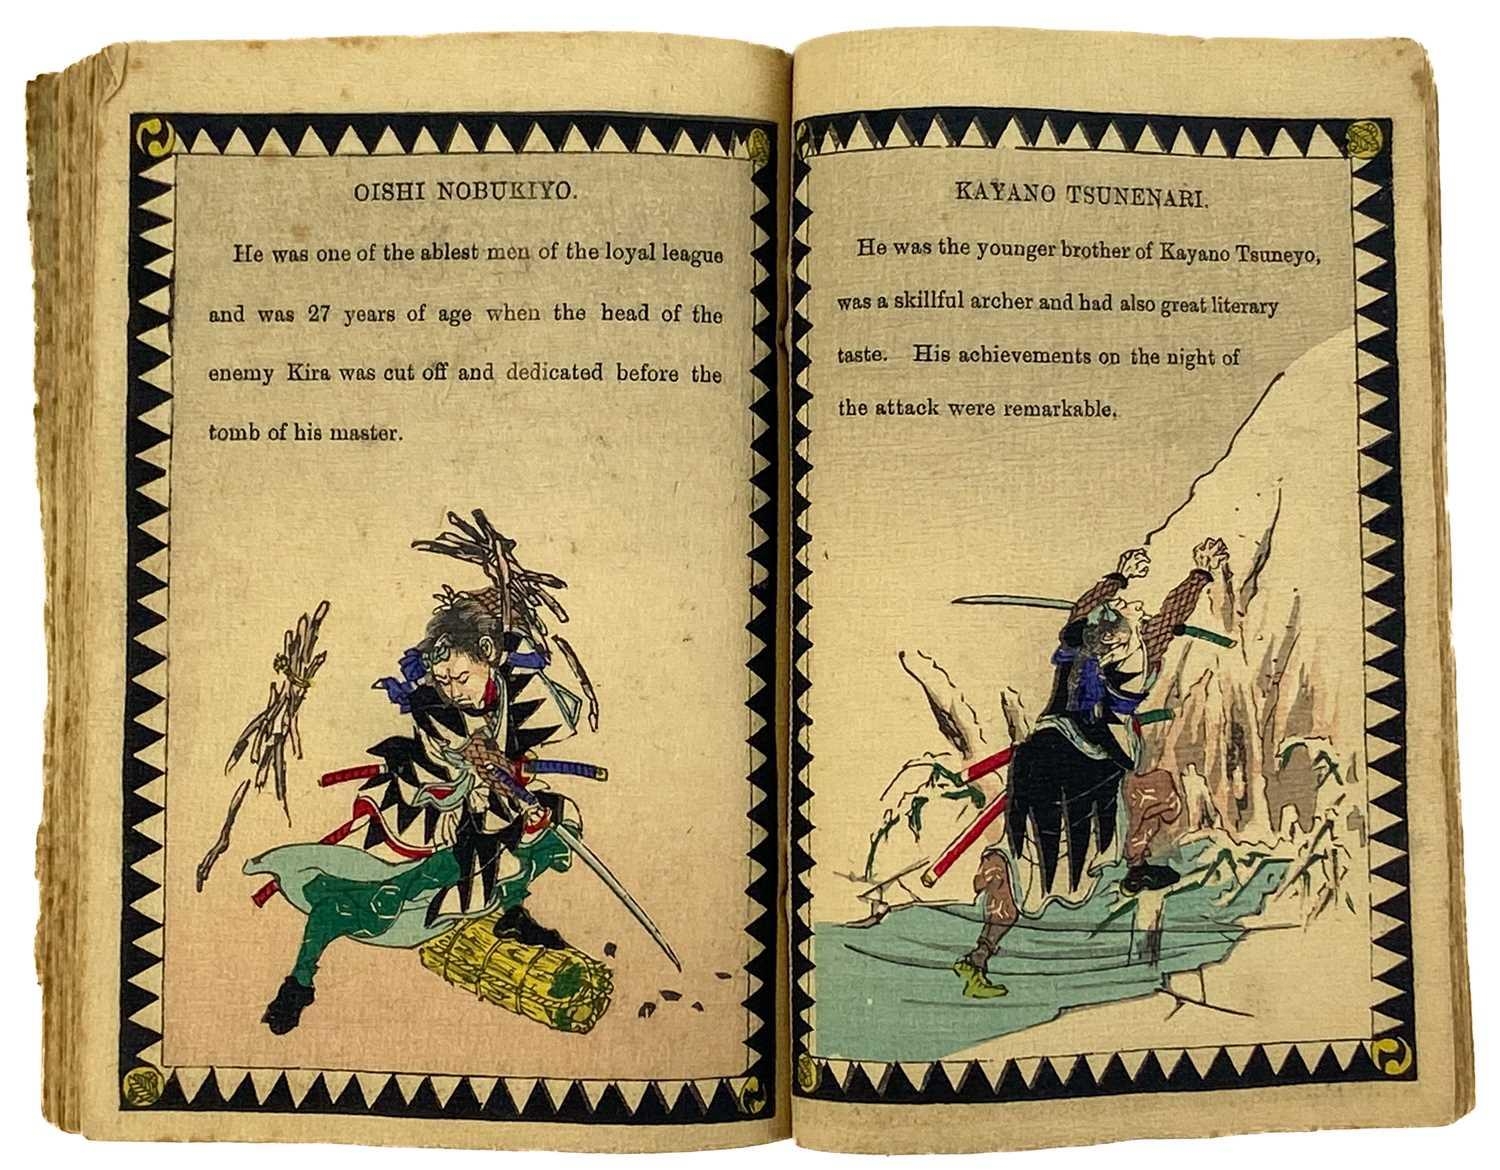 OISHI NOBUKIYO.
He was one of the ablest men of the loyal league
and was 27 years of age when the head of the
enemy Kira was cut off and dedicated before the
tomb of his master.
KAYANO TSUNENARI.
He was the younger brother of Kayano Tsuneyo,
was a skillful archer and had also great literary
taste. His achievements on the night of
the attack were remarkable.